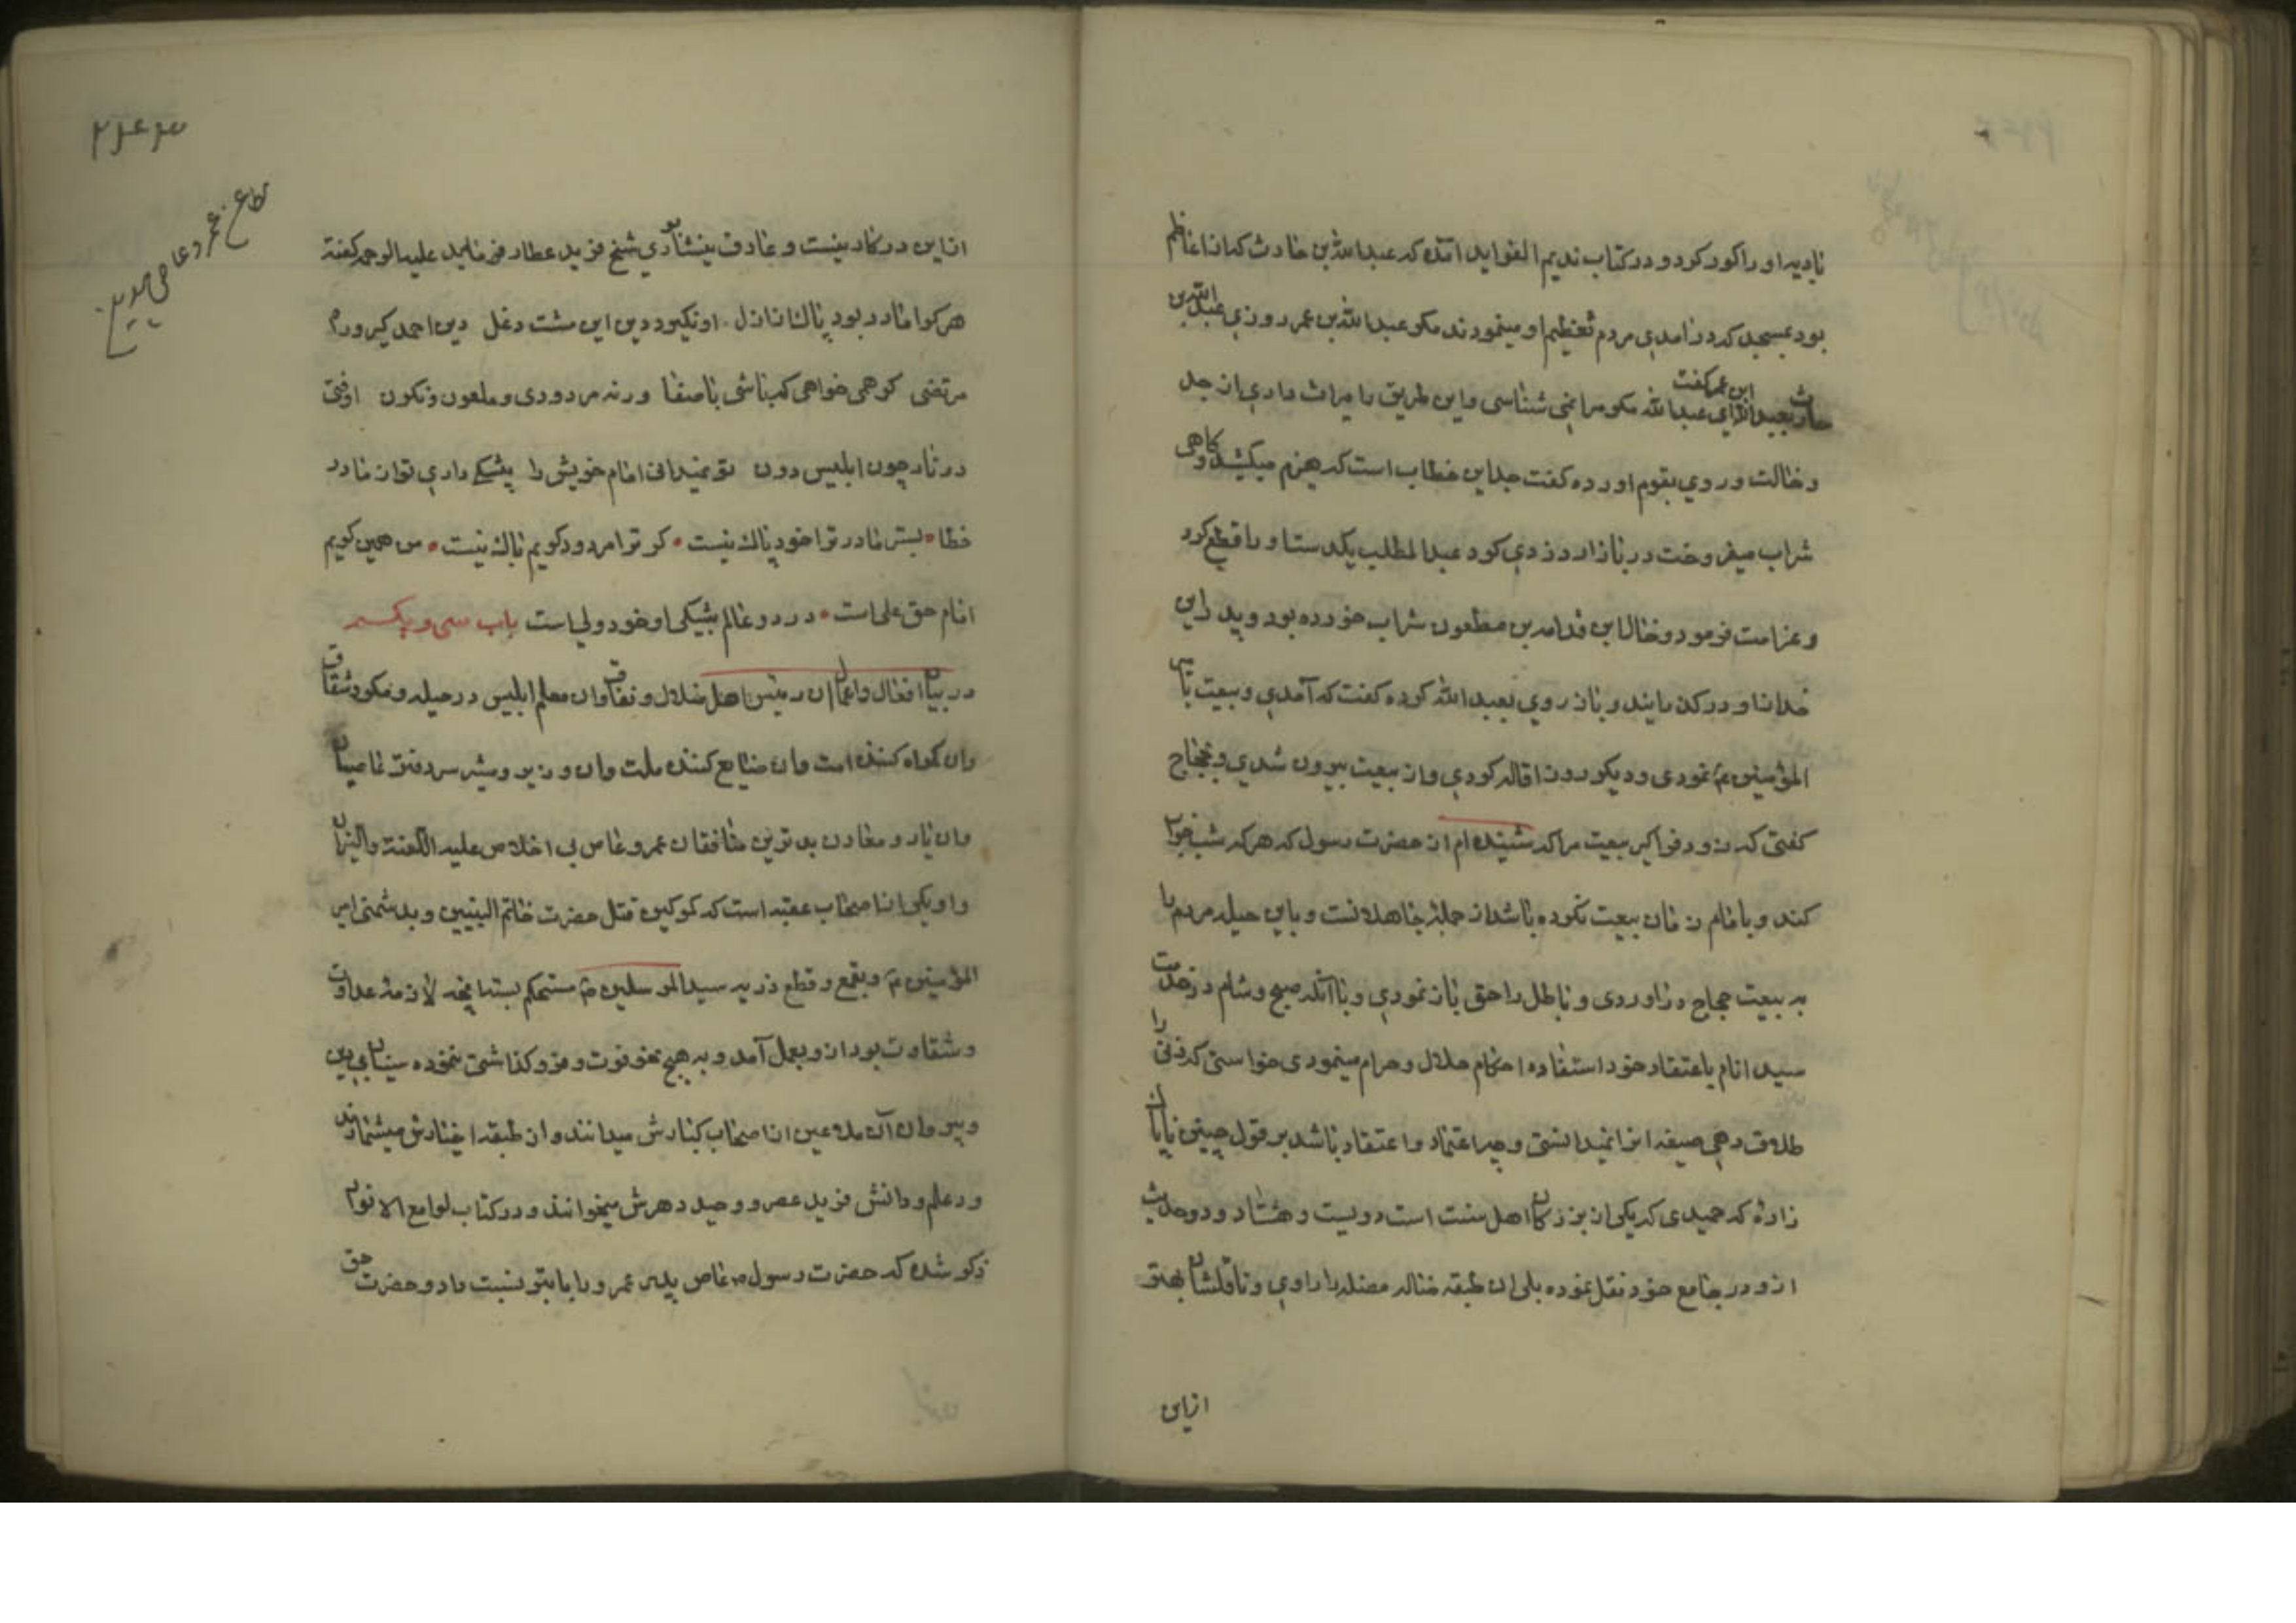 نادیه او را کور کرد و در کتاب ندیم الفواید آمده که عبدالله بن حارث که از اعاظم
بود بمسجد که در آمدی مردم تعظیم او مینمودند مکر عبدالله بن عمر روزی عبدالله بن
حارث بعبدالله ابن عمر کفت ای عبدالله مکر مرا نمی شناسی و این طریق را میراث داری از جد
و خالت و روی بقوم آورده کفت جد این خطاب است که هیزم میکشید و کاهی
شراب میفروخت در بازار دزدی کرد عبدالمطلب یکدست او را قطع کرد
و غرامت فرمود و خال این قدامه بن مظعون شراب خورده بود و پدر این
خدا نا او در کذرانید و باز روی بعبدالله کرده کفت که آمدی و بیعت بامیر
المؤمنین ع نمودی و دیکر روز اقاله کردی و از بیعت بیرون شدی و بحجاج
کفتی که زود فراکیر بیعت مرا که شنیده ام از حضرت رسول که هرکه شب خواب
کند و با امام زمان بیعت نکرده باشد از جمله جاهلانست و باین حیله مردم را
به بیعت حجاج در آوردی و باطل را حق باز نمودی و با آنکه صبح و شام در خدمت
سید انام باعتقاد خود استفاده احکام حلال و حرام مینمودی خواستی که زنی را
طلاق دهی صیغه انرا نمیدانستی و چه اعتماد و اعتقاد باشد بر قول چنین نایاک
زاده که حمیدی که یکی از بزرکان اهل سنت است دویست و هشتاد و دو حدیث
ازو در جامع خود نقل نموده بلی ان طبقه ضاله مضله را راوی و ناقلشان بهتر
ازین
۲۴۴۳
از این در کار نیست و عارف نیشابوری شیخ فرید عطار فرماید علیه الرحمه کفته
هر کرا مادر بود پاک از ازل او نکیرد دین این مشت دغل دین احمد کیر و راه
مرتضی کر همی خواهی که باشی باصفا ورنه مردودی و ملعون و نکون اوفتی
در نار چون ابلیس دون تو نمیدانی امام خویش را بیشکی داری تو از مادر
خطا بستر مادر ترا خود پاک نیست کر ترا مردود کویم باک نیست من همین کویم
امام حق علی است در دو عالم بیشکی او خود ولی است باب سی و یکم
در بیان افعال و اعمال ان رئیس اهل ضلال و نفاق وان معلم ابلیس در حیله و مکر و شقاق
وان کمراه کننده امت وان ضایع کننده ملت وان وزیر و مشیر سردفتر عاصیان
وان یار و معاون بدترین منافقان عمرو عاص بی اخلاص علیه اللعنة والنیران
و او یکی از اصحاب عقبه است که کمر کین قتل حضرت خاتم النبیین و بدشمنی امیر
المؤمنین ع و بقمع و قطع ذریه سید المرسلین ص مستحکم بسته انچه لازمه عداوت
و شقاوت بود ازو بعمل آمد و به هیچ نحو فوت و فروکذاشتی ننموده سنیان بی دین
و پیروان آن ملاعین از اصحاب کبارش میدانند و ان طبقه اخیارش میشمارند
و در علم و دانش فرید عصر و وحید دهرش میخوانند و در کتاب لوامع الانوار
ذکر شده که حضرت رسول ص عاص پدر عمرو را با ابتر نسبت داد و حضرت حق